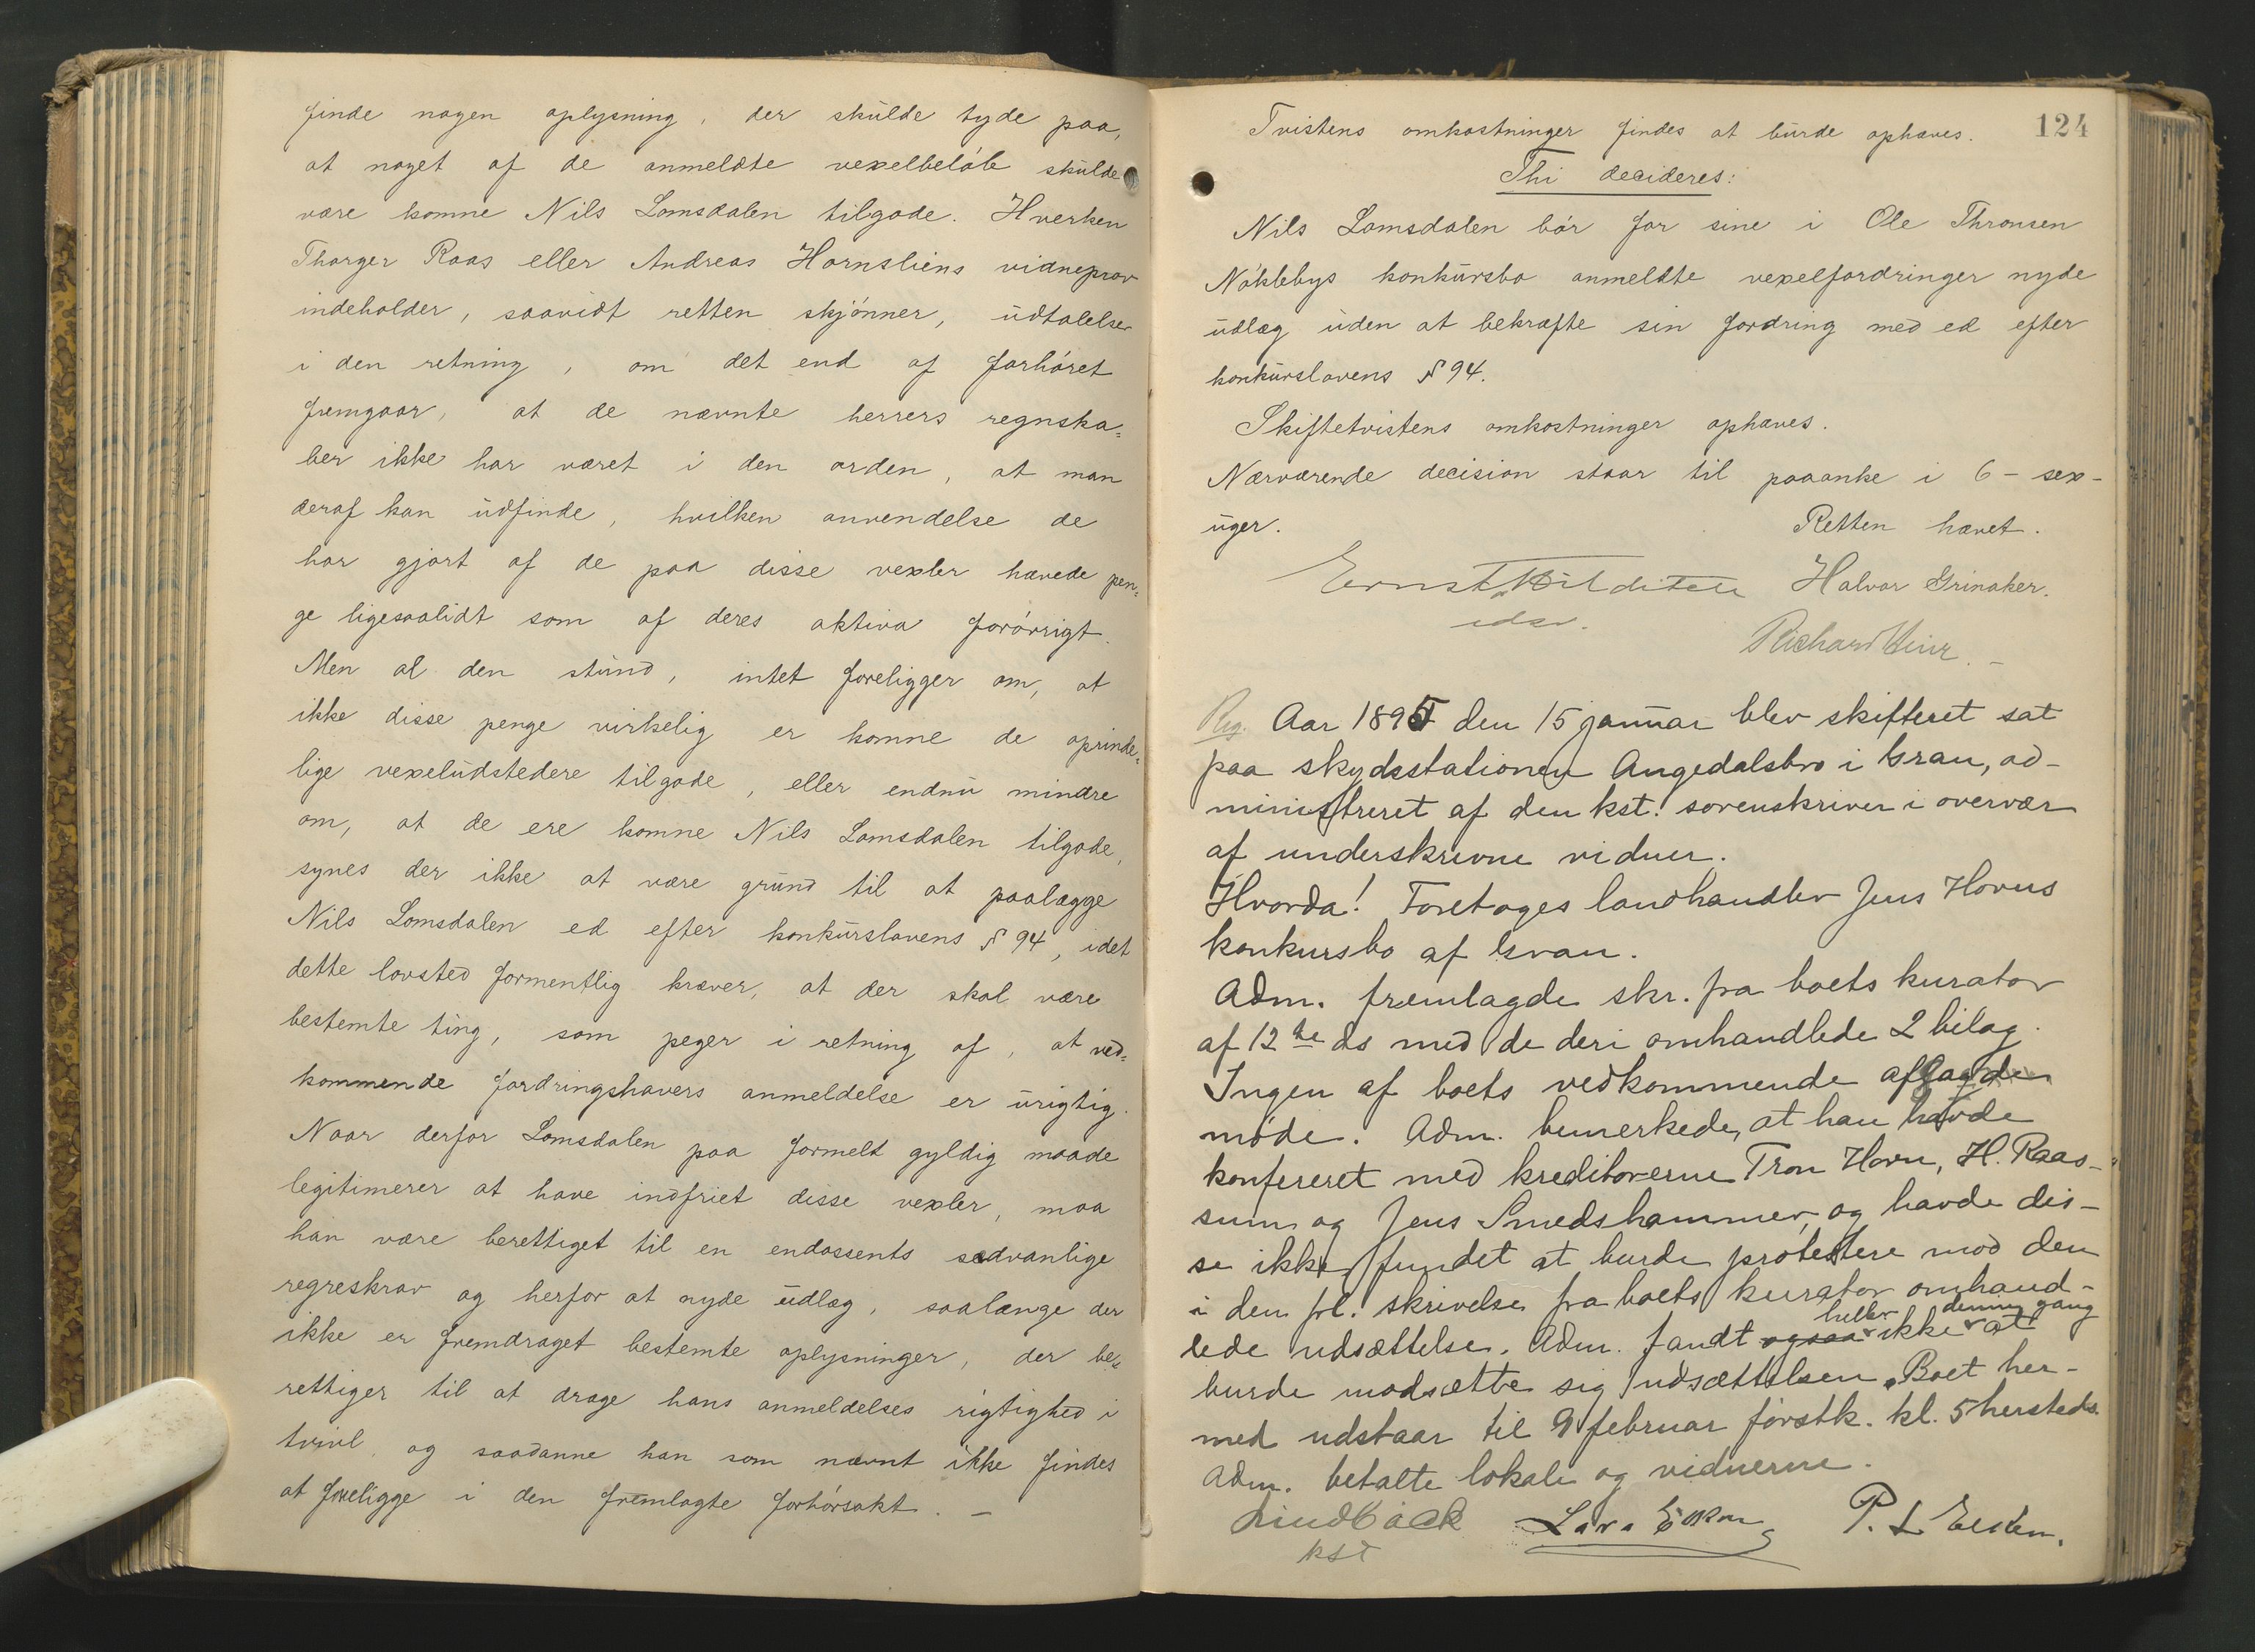 finde nogen oplysning, der skulde tyde paa,
at noget af de anmeldte vexelbeløb skulde
være komne Nils Lomsdalen tilgode. Hverken
Thorger Raas eller Andreas Hornsliens vidneprov
indeholder, saavidt retten skjønner, udtalelser
i den retning, om det end af forhøret
fremgaar, at de nævnte herrers regnska=
ber ikke har været i den orden, at man
deraf kan udfinde, hvilken anvendelse de
har gjort af de paa disse vexler hævede pen=
ge ligesaalidt som af deres aktiva forøvrigt.
Men al den stund, intet foreligger om, at
ikke disse penge virkelig er komne de oprinde=
lige vexeludstedere tilgode, eller endnu mindre
om, at de ere komne Nils Lomsdalen tilgode,
synes der ikke at være grund til at paalægge
Nils Lomsdalen ed efter konkurslovens § 94, idet
dette lovsted formentlig kræver, at der skal være
bestemte ting, som peger i retning af, at ved=
kommende fordringshavers anmeldelse er urigtig.
Naar derfor Lomsdalen paa formelt gyldig maade
legitimerer at have indfriet disse vexler, maa
han være berettiget til en endossents sædvanlige
regreskrav og herfor at nyde udlæg, saalænge der
ikke er fremdraget bestemte oplysninger, der be=
rettiger til at drage hans anmeldelses rigtighed i
tvivl og saadanne kan som nævnt ikke findes
at foreligge i den fremlagte forhørsakt. —
124
Tvistens omkostninger findes at burde ophæves.
Thi decideres:
Nils Lomsdalen bør for sine i Ole Thronsen
Nøklebys konkursbo anmeldte vexelfordringer nyde
udlæg uden at bekræfte sin fordring med ed efter
konkurslovens § 94.
Skiftetvistens omkostninger ophæves.
Nærværende decision staar til paaanke i 6 - sex -
uger. Retten hævet.
Ernst Hilditch Halvor Grinaker.
Richard
Reg. Aar 1895 den 15 januar blev skifteret sat
paa skydsstationen Augedalsbro i Gran, ad-
ministreret af den kst. sorenskriver i overvær
af underskrevne vidner.
Hvorda! Foretoges landhandler Jens Hovns
konkursbo af Gran.
Adm. fremlagde skr. fra boets kurator
af 12te ds med de deri omhandlede 2 bilag.
Ingen af boets vedkommende afgav
møde. Adm. bemerkede, at han havde
konfereret med kreditorerne Tron Hovn, H. Raas-
sum og Jens Smedshammer, og havde dis-
se ikke fundet at burde protestere mod den
i den frl. skrivelse fra boets kurator omhand-
lede udsættelse. Adm. fandt ogsaa heller ikke denne gang at
burde modsætte sig udsættelsen. Boet her-
med udstaar til 9 februar førstk. kl. 5 hersteds.
Adm. betalte lokale og vidnerne.
Lindbäck Lars P. L
kst